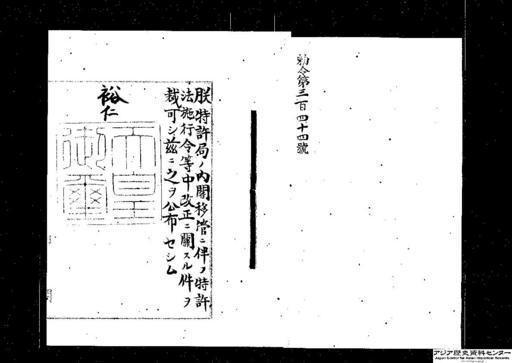 勅令第三百四十四號
朕特許局ノ内閣移管ニ伴フ特許
法施行令等中改正ニ關スル件ヲ
裁可シ茲ニ之ヲ公布セシム
裕仁
天皇
御璽
アジア歴史資料センター
Japan Center for Asian Historical Records